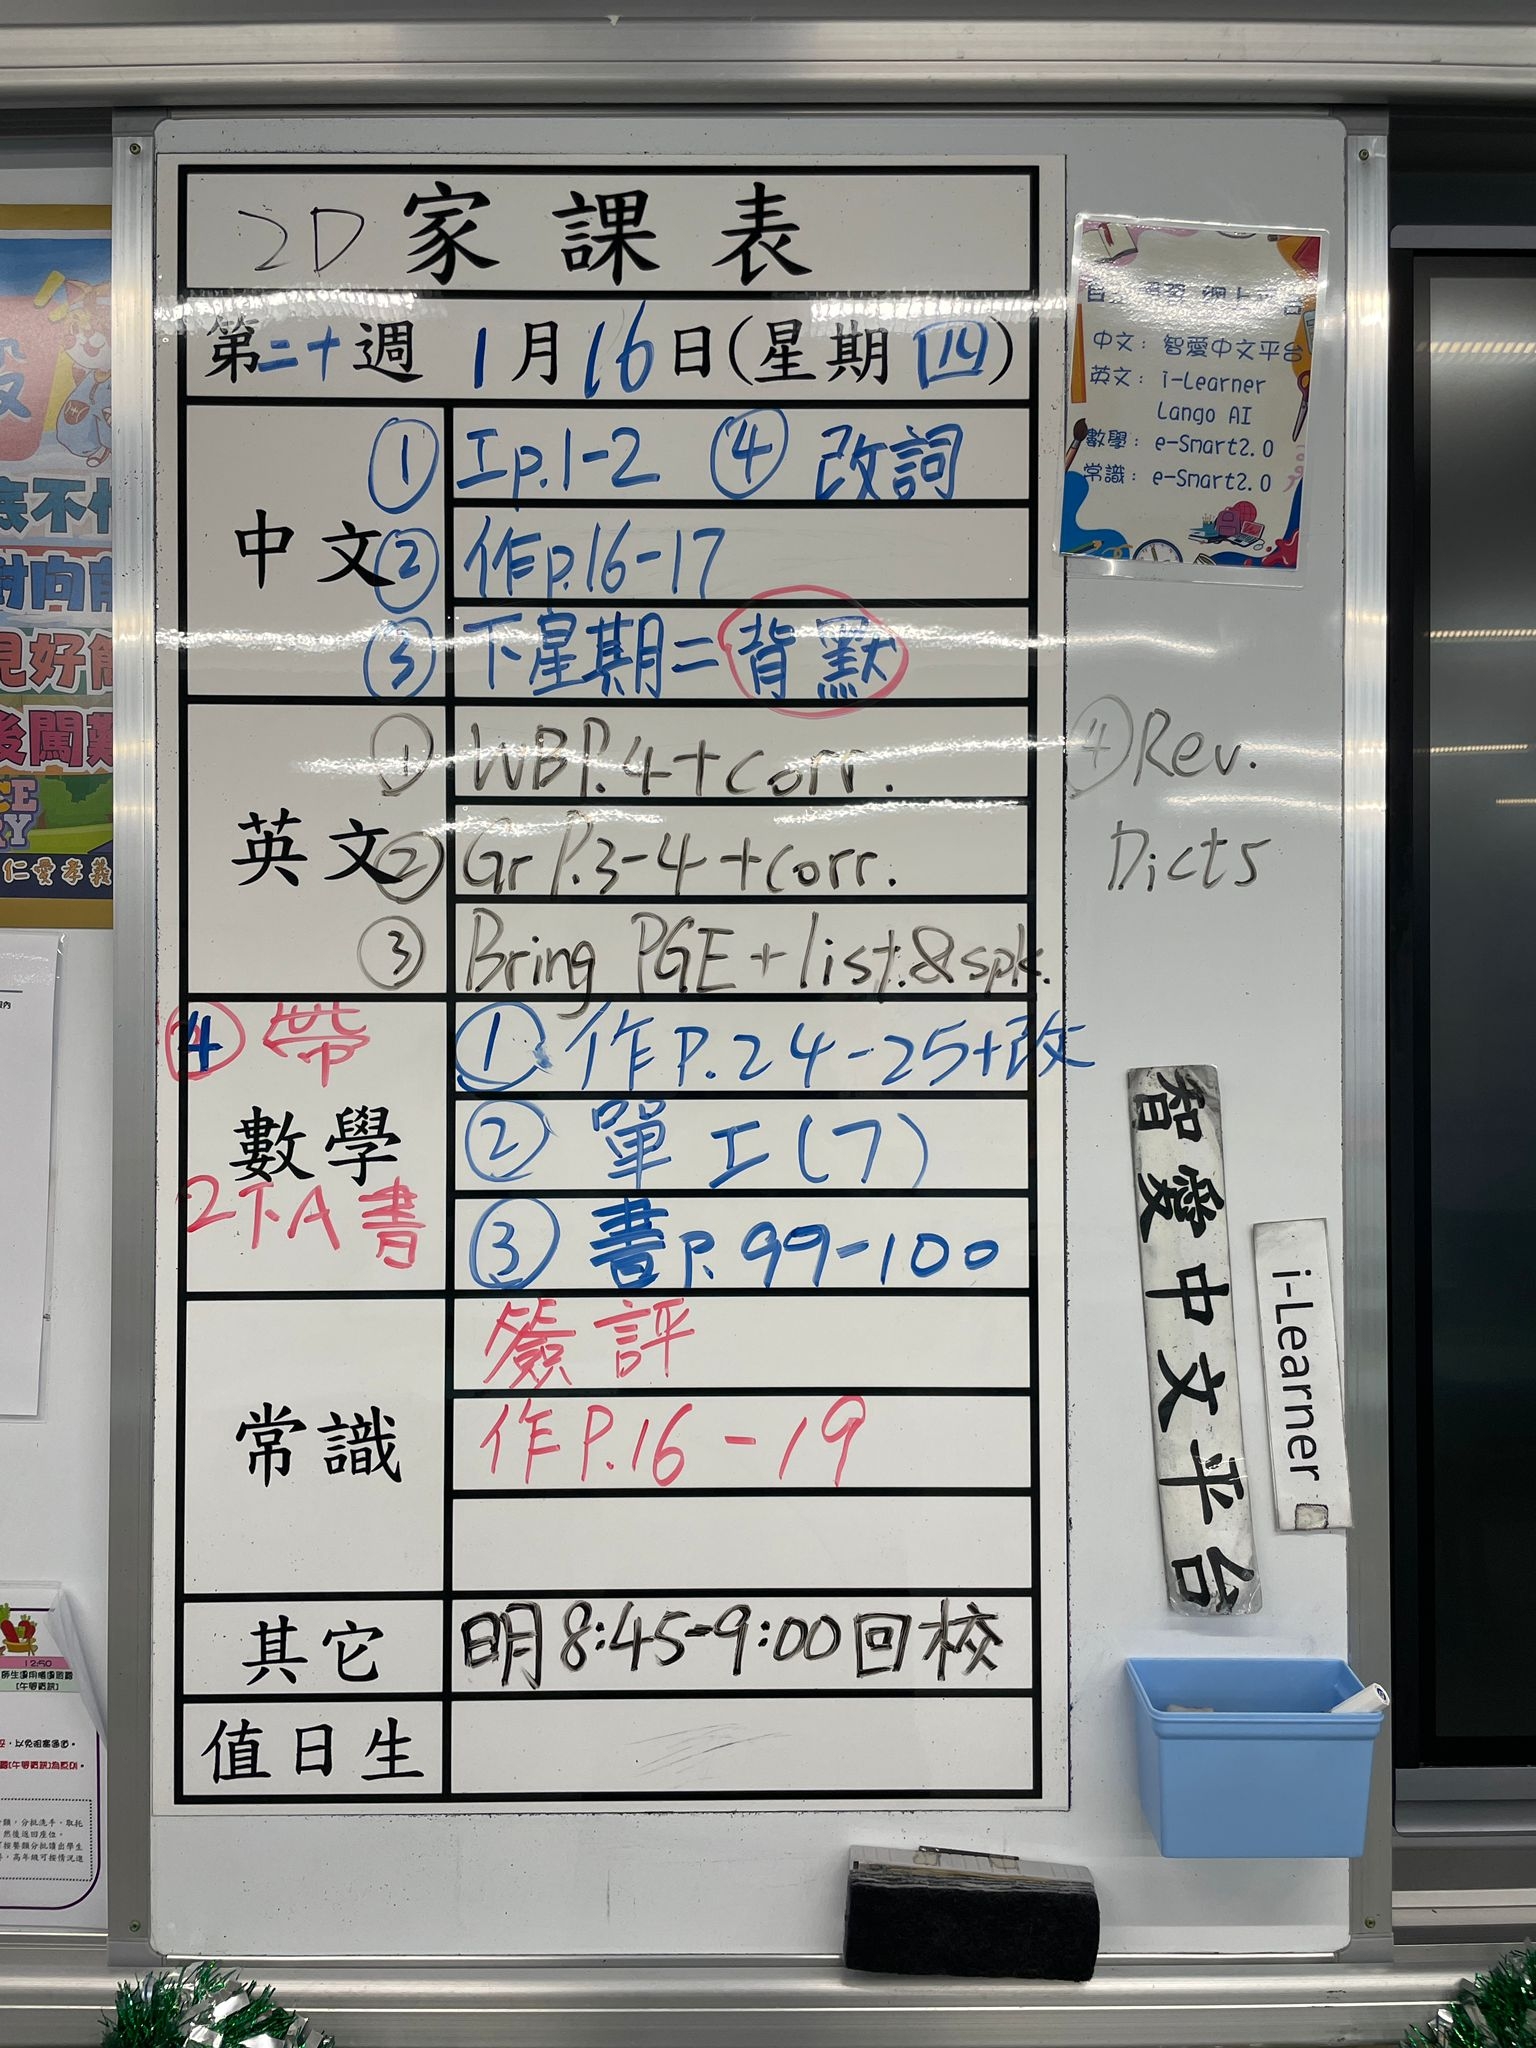 2D 家課表
第二十週 1月16日(星期四)
中文
① 工p.1-2 ④ 改詞
② 作p.16-17
③ 下星期二背默
英文
① WB P.4+corr.
② Gr P.3-4+corr.
③ Bring PGE + list.&spk.
④ Rev.
Dicts
數學
① 作P.24-25+改
② 單工(7)
③ 書P.99-100
④ 帶
2下A書
常識
簽評
作P.16-19
其它
明8:45-9:00回校
值日生
中文: 智愛中文平台
英文: i-Learner
Lango AI
數學: e-Smart2.0
常識: e-Smart2.0
智愛中文平台
i-Learner
仁愛孝義
12:50